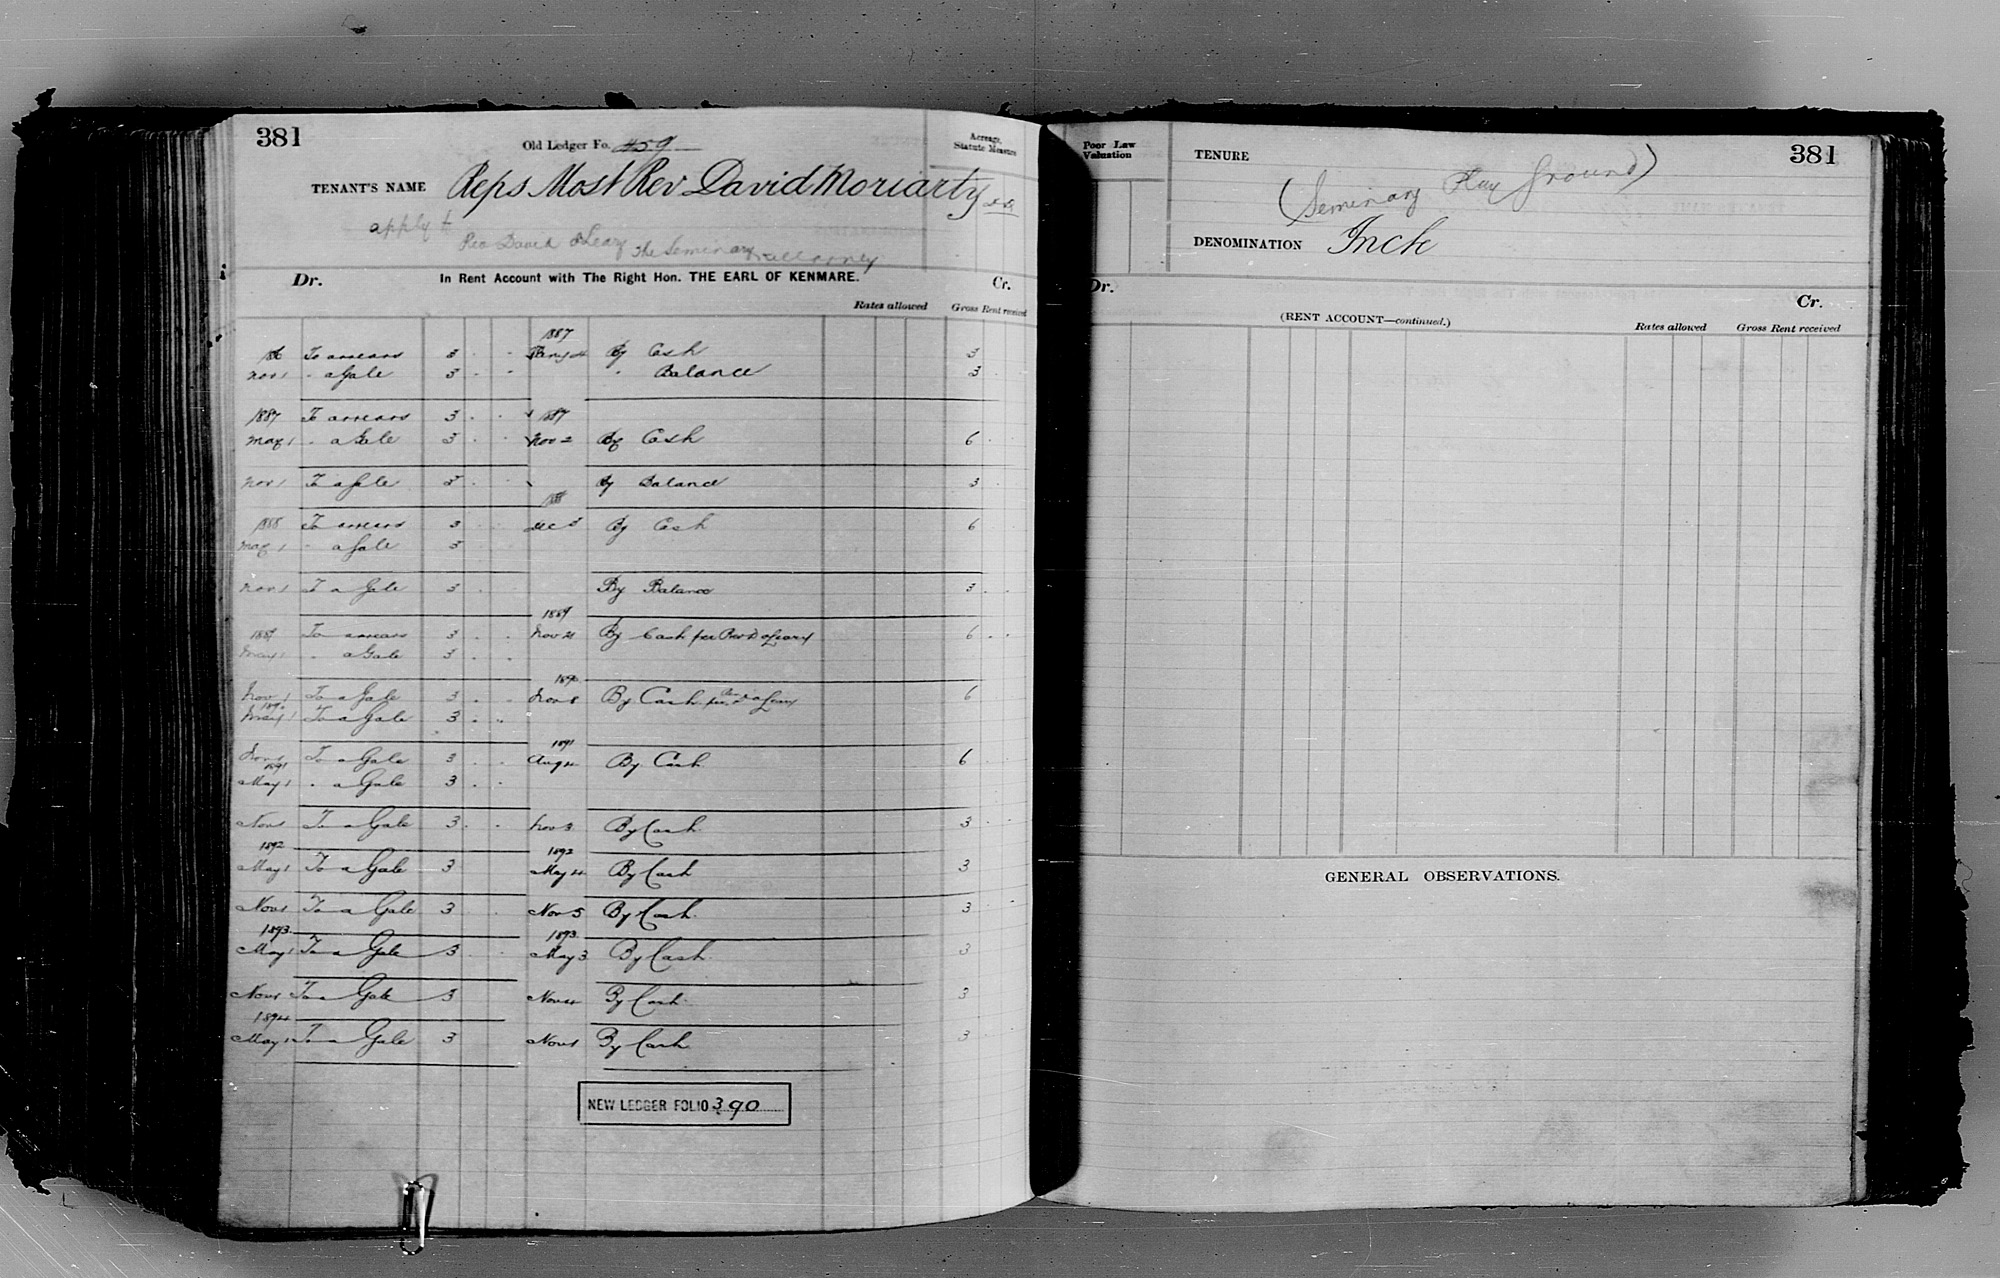 381
Old Ledger Fo. 459
Acreage, Statute Measure
TENANT'S NAME Reps Most Rev David Moriarty D.D.
apply to
Rev David O'Leary The Seminary Killarney
Dr. In Rent Account with The Right Hon. THE EARL OF KENMARE. Cr.
Rates allowed Gross Rent received
1887
To arrears 3 By Cash 3
Nov 1 " a Gale 3 " Balance 3
1887 To arrears 3 1887
May 1 " a Gale 3 Nov 2 By Cash 6
Nov 1 To a Gale 3 By Balance 3
1888
1888 To arrears 3 Dec 3 By Cash 6
May 1 " a Gale 3
Nov 1 To a Gale 3 By Balance 3
1889
1889 To arrears 3 Nov 21 By Cash per Rev D O'Leary 6
May 1 " a Gale 3
1890
Nov 1 To a Gale 3 Nov 8 By Cash per Rev D O'Leary 6
1890
May 1 To a Gale 3
1891
Nov 1 To a Gale 3 Aug 4 By Cash 6
1891
May 1 " a Gale 3
Nov 1 To a Gale 3 Nov 3 By Cash 3
1892 1892
May 1 To a Gale 3 May 4 By Cash 3
Nov 1 To a Gale 3 Nov 5 By Cash 3
1893 1893
May 1 To a Gale 3 May 3 By Cash 3
Nov 1 To a Gale 3 Nov 4 By Cash 3
1894
May 1 To a Gale 3 Nov 1 By Cash 3
NEW LEDGER FOLIO 390
Poor Law Valuation
TENURE
381
(Seminary Play Ground)
DENOMINATION Inch
Dr. Cr.
(RENT ACCOUNT—continued.)
Rates allowed Gross Rent received
GENERAL OBSERVATIONS.